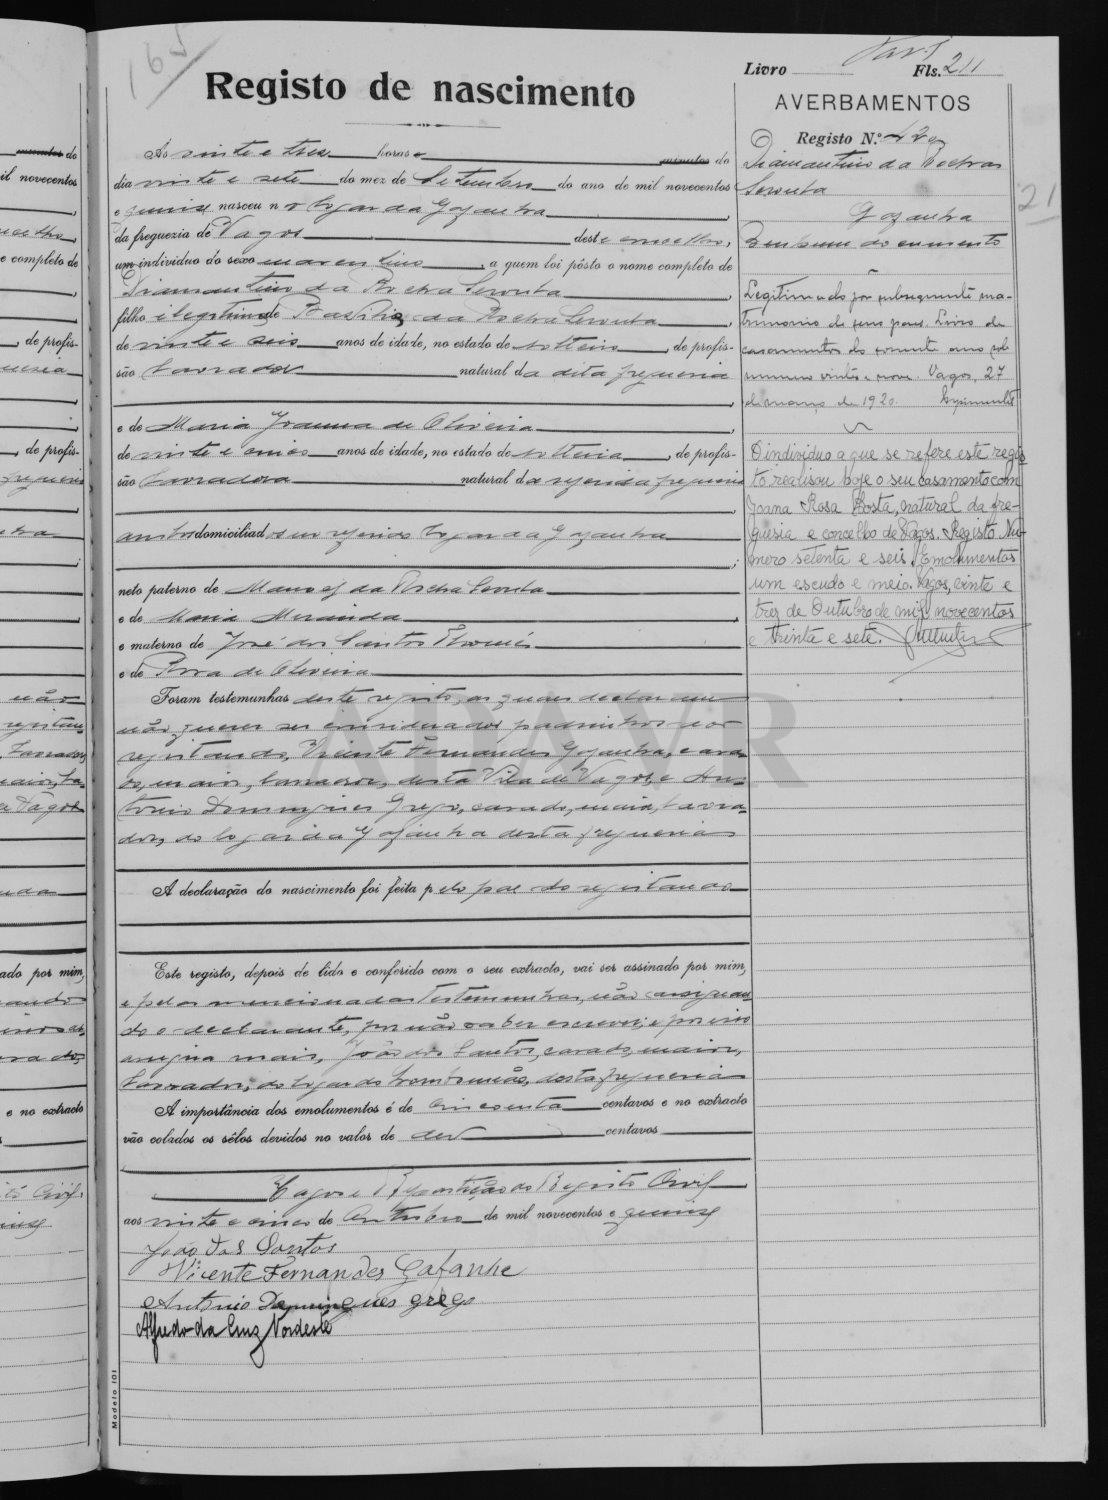 165
Registo de nascimento
Ás vinte e tres horas e minutos do
dia vinte e sete do mez de Setembro do ano de mil novecentos
e quinze nasceu n o logar da Gafanha,
da freguezia de Vagos deste concelho,
um individuo do sexo masculino, a quem foi pôsto o nome completo de
Diamantino da Rocha Serouta,
filho ilegitimo de Basilio da Rocha Serouta,
de vinte e seis anos de idade, no estado de solteiro, de profis-
são Lavrador natural da dita freguesia
e de Maria Joanna de Oliveira,
de vinte e cinco anos de idade, no estado de solteira, de profis-
são Lavradora natural da referida freguesia
ambos domiciliados no referido logar da Gafanha
neto paterno de Manoel da Rocha Serouta
e de Maria Miranda,
e materno de José dos Santos Thomé
e de Rosa de Oliveira
Foram testemunhas deste registo, as quaes declaram
não querer ser considerados padrinhos do
registando, Vicente Fernandes Gafanha, casa-
do, maior, lavrador, desta Vila de Vagos, e An-
tonio Domingues Grego, casado, maior, lavra-
dor, do logar da Gafanha desta freguesia
A declaração do nascimento foi feita pelo pae do registando
Este registo, depois de lido e conferido com o seu extracto, vai ser assinado por mim,
e pelas mencionadas testemunhas, não assignan-
do o declarante, por não saber escrever, e por isso
assigna mais, João dos Santos, casado, maior,
Lavrador, do logar do Lombomeão, desta freguesia
A importância dos emolumentos é de cincoenta centavos e no extracto
vão colados os sêlos devidos no valor de dez centavos
Vagos e Repartição do Registo Civil
aos vinte e cinco de Outubro de mil novecentos e quinze
João dos Santos
Vicente Fernandes Gafanhe
António Domingues grego
Alfredo da Cruz Nordeste
Modelo 101
Livro Fls. 211
AVERBAMENTOS
Registo N.º
Diamantino da Rocha
Serouta
Gafanha
Nenhum documento
21
Legitimado por subsequente ma-
trimonio de seus paes. Livro de
casamentos do corrente ano sob
numero vinte e nove. Vagos, 27
de março de 1920.
O individuo a que se refere este regis-
to realisou hoje o seu casamento com
Joana Rosa Costa, natural da fre-
guesia e concelho de Vagos. Registo Nu-
mero setenta e seis. Emolumentos
um escudo e meio. Vagos, vinte e
tres de Outubro de mil novecentos
e trinta e sete.
ADAVR